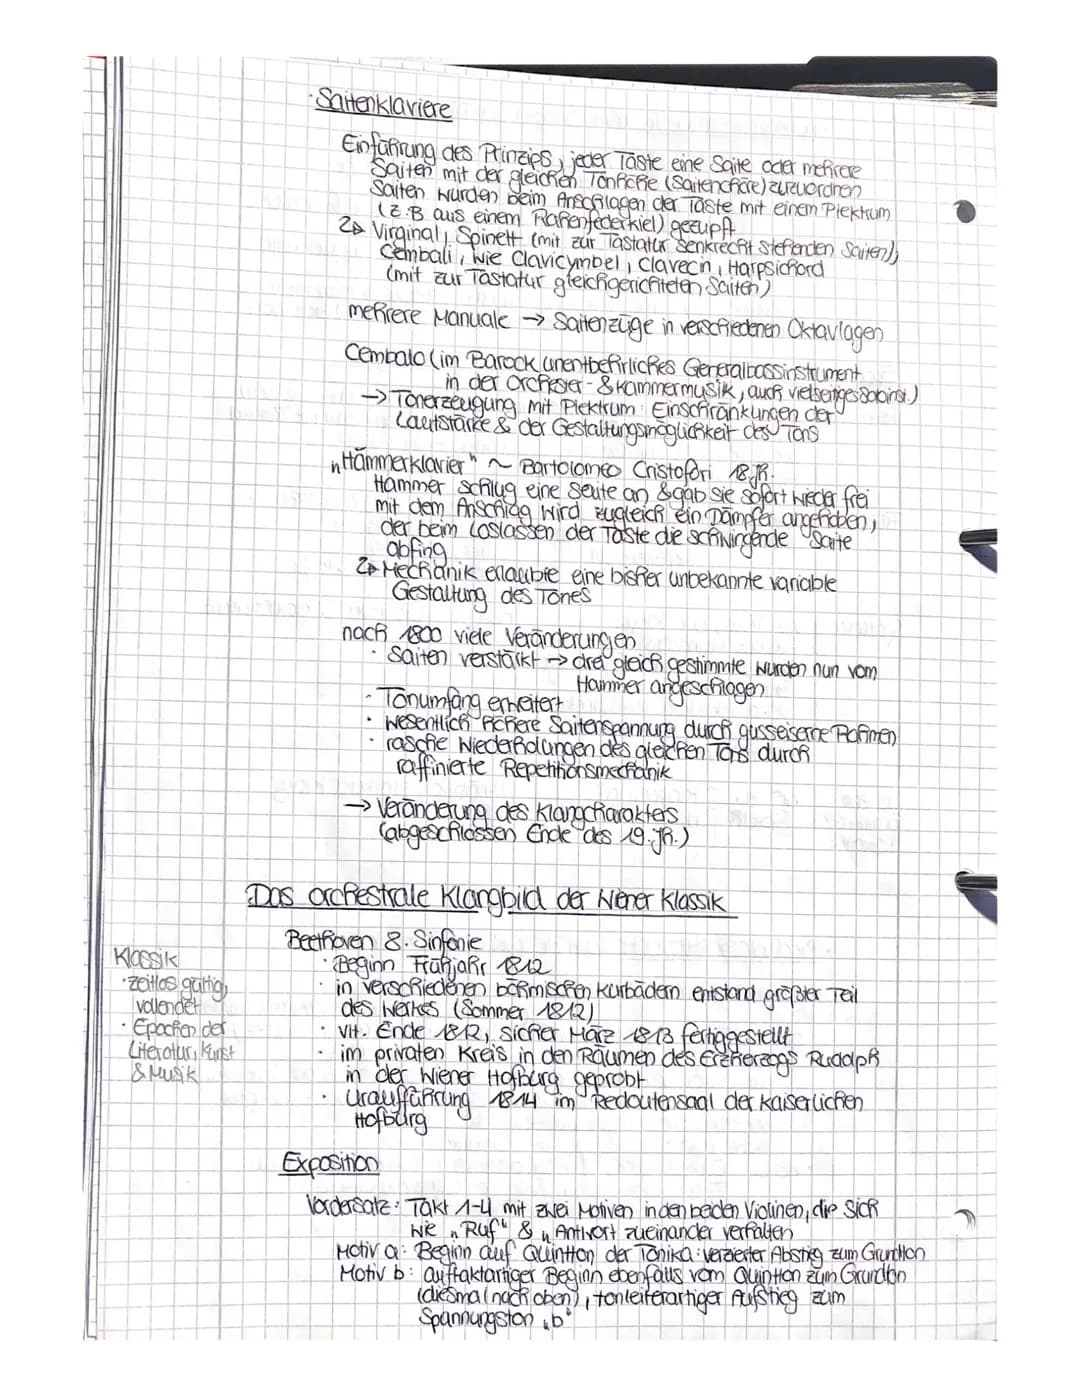 · Saitenklaviere
Einführung des Prinzips, jeder Taste eine Saite oder mehrere
Saiten mit der gleichen Tonhöhe (Saitenchöre) zuzuordnen
Saiten wurden beim Anschlagen der Taste mit einem Plektrum
(z.B aus einem Rabenfederkiel) gezupft
↳ Virginal, Spinett (mit zur Tastatur senkrecht stehenden Saiten),
Cembali, wie Clavicymbel, Clavecin, Harpsichord
(mit zur Tastatur gleichgerichteten Saiten)
mehrere Manuale → Saitenzüge in verschiedenen Oktavlagen
Cembalo (im Barock unentbehrliches Generalbassinstrument
in der Orchester- & Kammermusik, auch vielseitiges Soloinst.)
→ Tonerzeugung mit Plektrum: Einschränkungen der
Lautstärke & der Gestaltungsmöglichkeit des Tons
„Hammerklavier" ~ Bartolomeo Cristofori 18.Jh.
Hammer schlug eine Seute an & gab sie sofort wieder frei
mit dem Anschlag wird zugleich ein Dämpfer angehoben,
der beim Loslassen der Taste die schwingende Saite
abfing
↳ Mechanik erlaubte eine bisher unbekannte variable
Gestaltung des Tones
nach 1800 viele Veränderungen
· Saiten verstärkt → drei gleich gestimmte wurden nun vom
Hammer angeschlagen
· Tonumfang erweitert
· wesentlich höhere Saitenspannung durch gusseiserne Rahmen
· rasche Wiederholungen des gleichen Tons durch
raffinierte Repetitionsmechanik
→ Veränderung des Klangcharakters
(abgeschlossen Ende des 19.Jh.)
Das orchestrale Klangbild der Wiener Klassik
Beethoven 8. Sinfonie
· Beginn Frühjahr 1812
· in verschiedenen böhmischen Kurbädern entstand größter Teil
des Werkes (Sommer 1812)
· vlt. Ende 1812, sicher März 1813 fertiggestellt
· im privaten Kreis in den Räumen des Erzherzogs Rudolph
in der Wiener Hofburg geprobt
· Uraufführung 1814 im Redoutensaal der kaiserlichen
Hofburg
Klassik
· zeitlos gültig,
vollendet
· Epochen der
Literatur, Kunst
& Musik
Exposition
Vordersatz: Takt 1-4 mit zwei Motiven in den beiden Violinen, die sich
wie „Ruf" & „Antwort zueinander verhalten
Motiv a: Beginn auf Quintton der Tonika: verzierter Abstieg zum Grundton
Motiv b: auftaktartiger Beginn ebenfalls vom Quintton zum Grundton
(diesmal nach oben), tonleiterartiger Aufstieg zum
Spannungston „b"